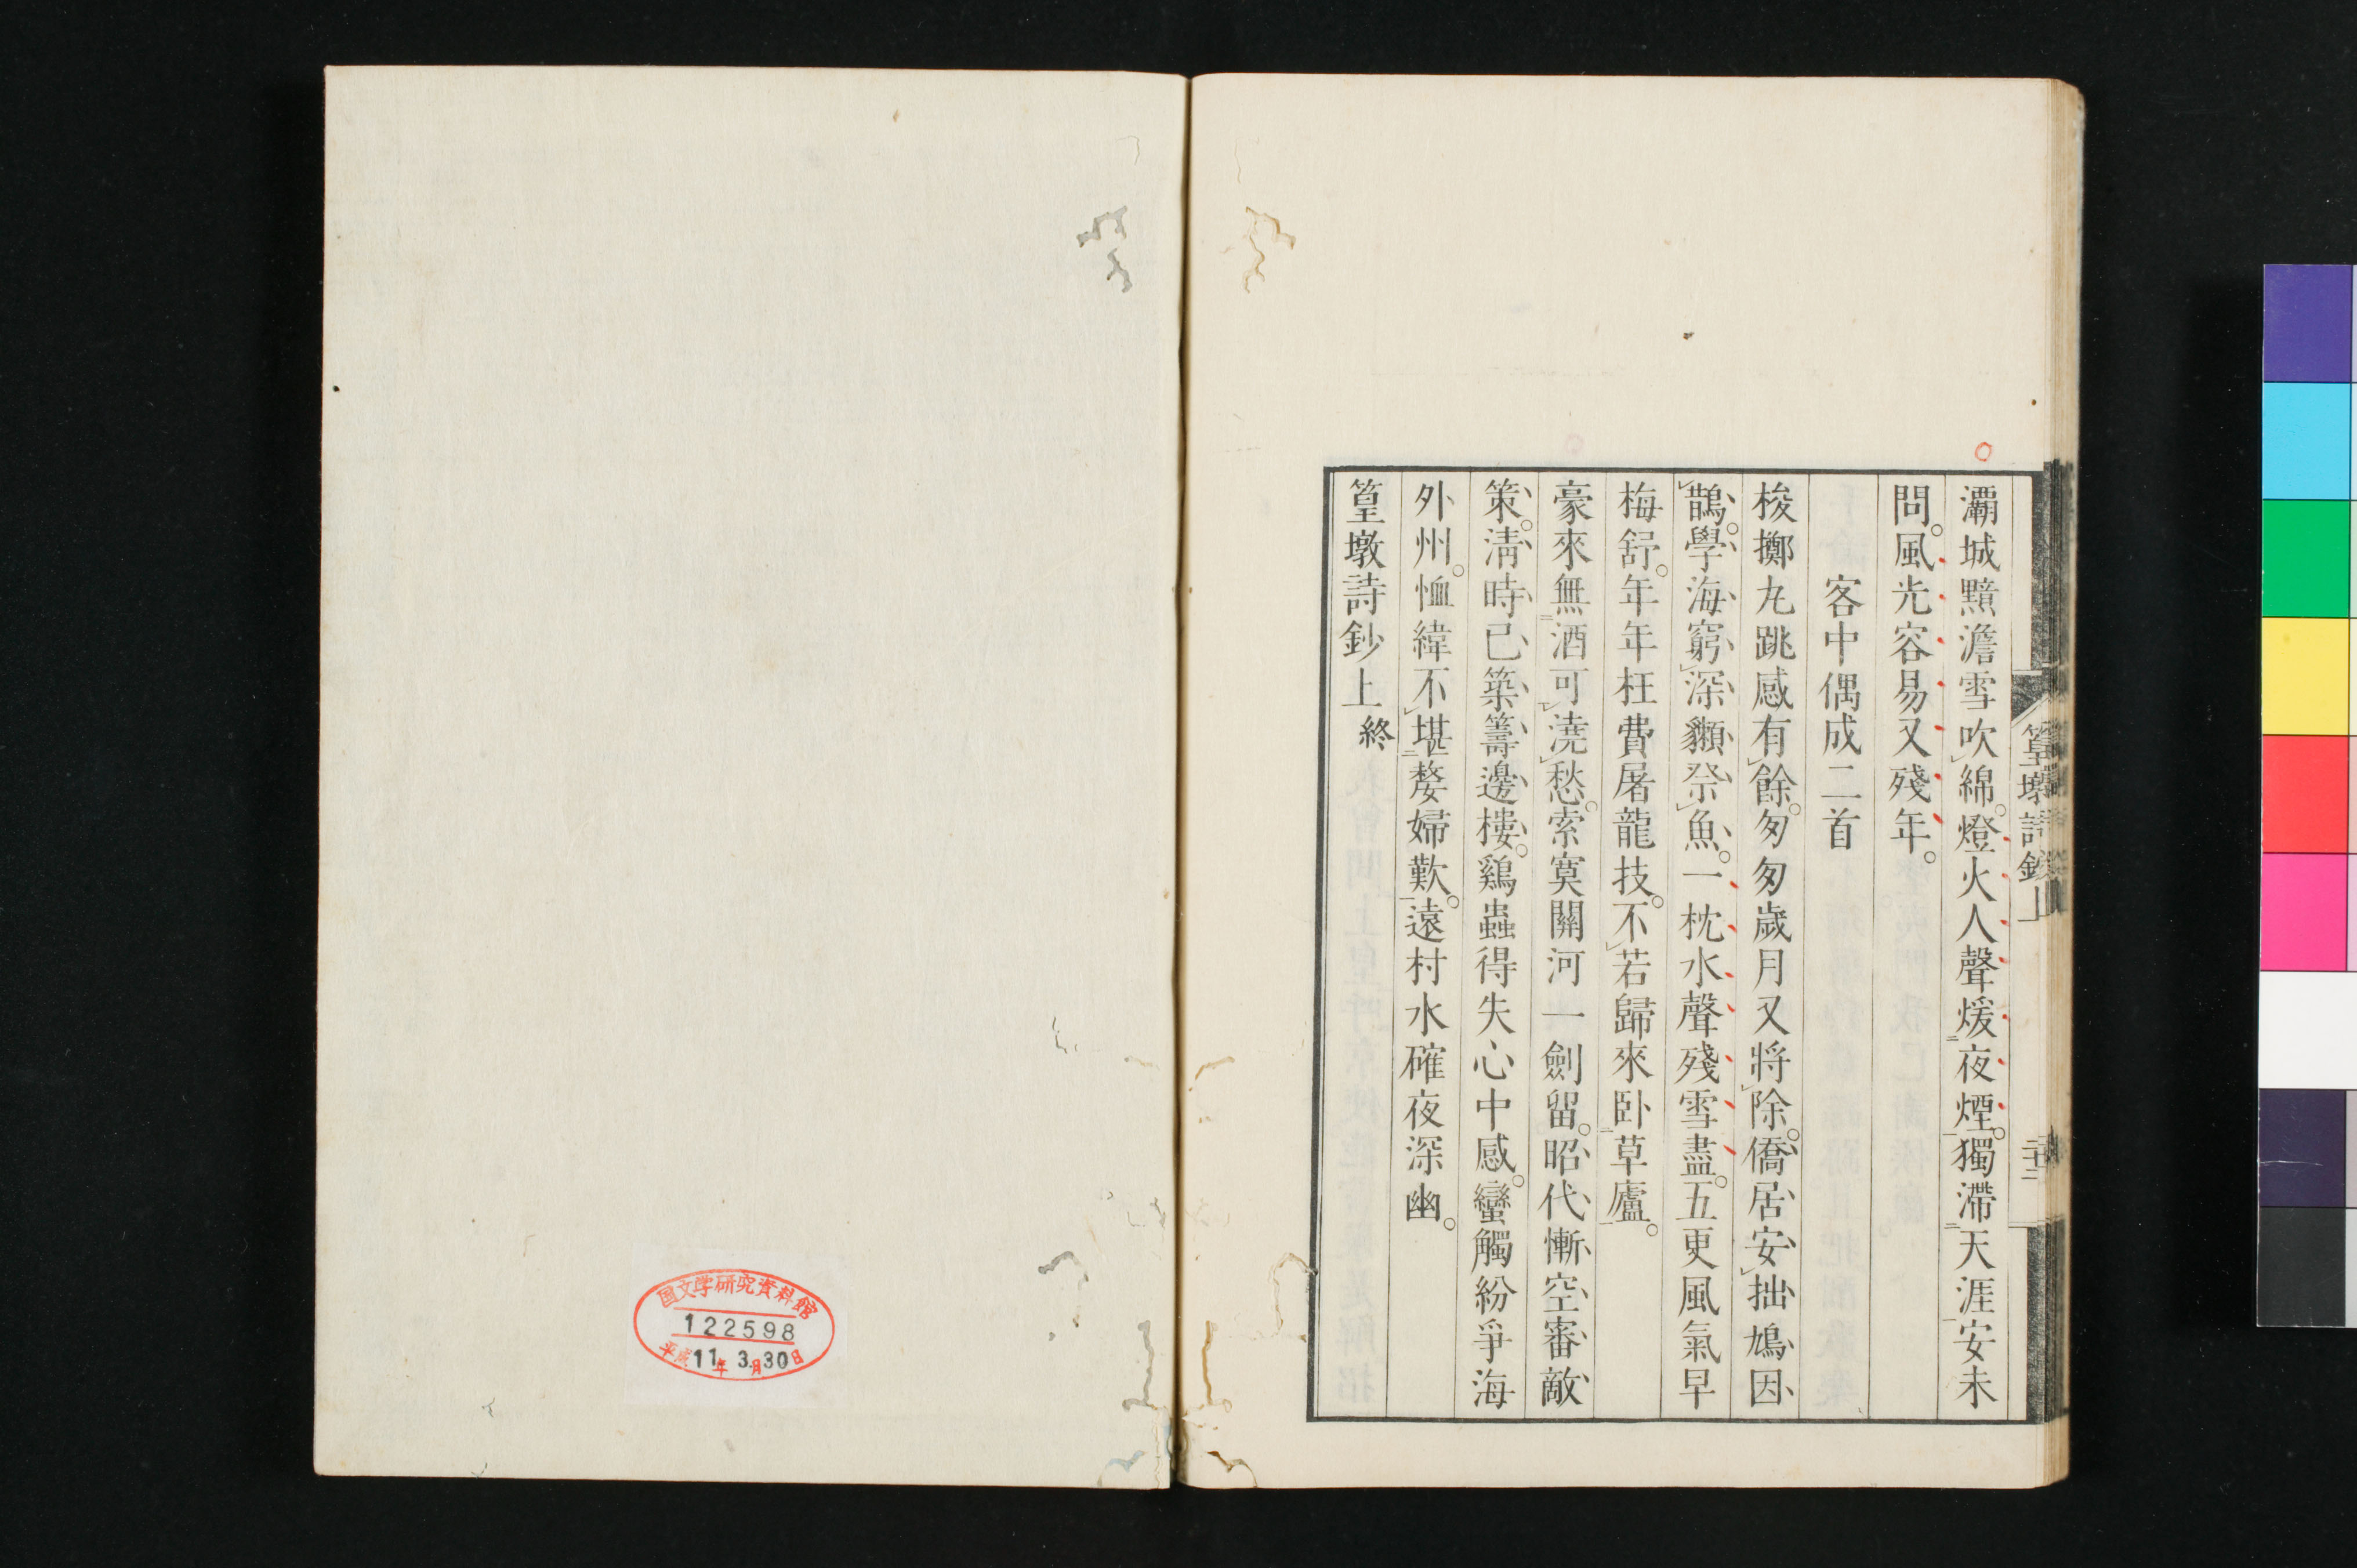 灞城黯澹雪吹綿。燈火人聲煖夜煙。獨滯天涯安未
問。風光容易又殘年。
客中偶成二首
梭擲丸跳感有餘。匆匆歲月又將除。僑居安拙鳩因
鵲。學海窮深獺祭魚。一枕水聲殘雪盡。五更風氣早
梅舒。年年枉費屠龍技。不若歸來臥草廬。
豪來無酒可澆愁。索寞關河一劍留。昭代慚空審敵
策。淸時已築籌邊樓。鷄蟲得失心中感。蠻觸紛爭海
外州。恤緯不堪嫠婦歎。遠村水確夜深幽。
篁墩詩鈔上終
篁墩詩鈔上
国文学研究資料館
122598
平成11年3月30日